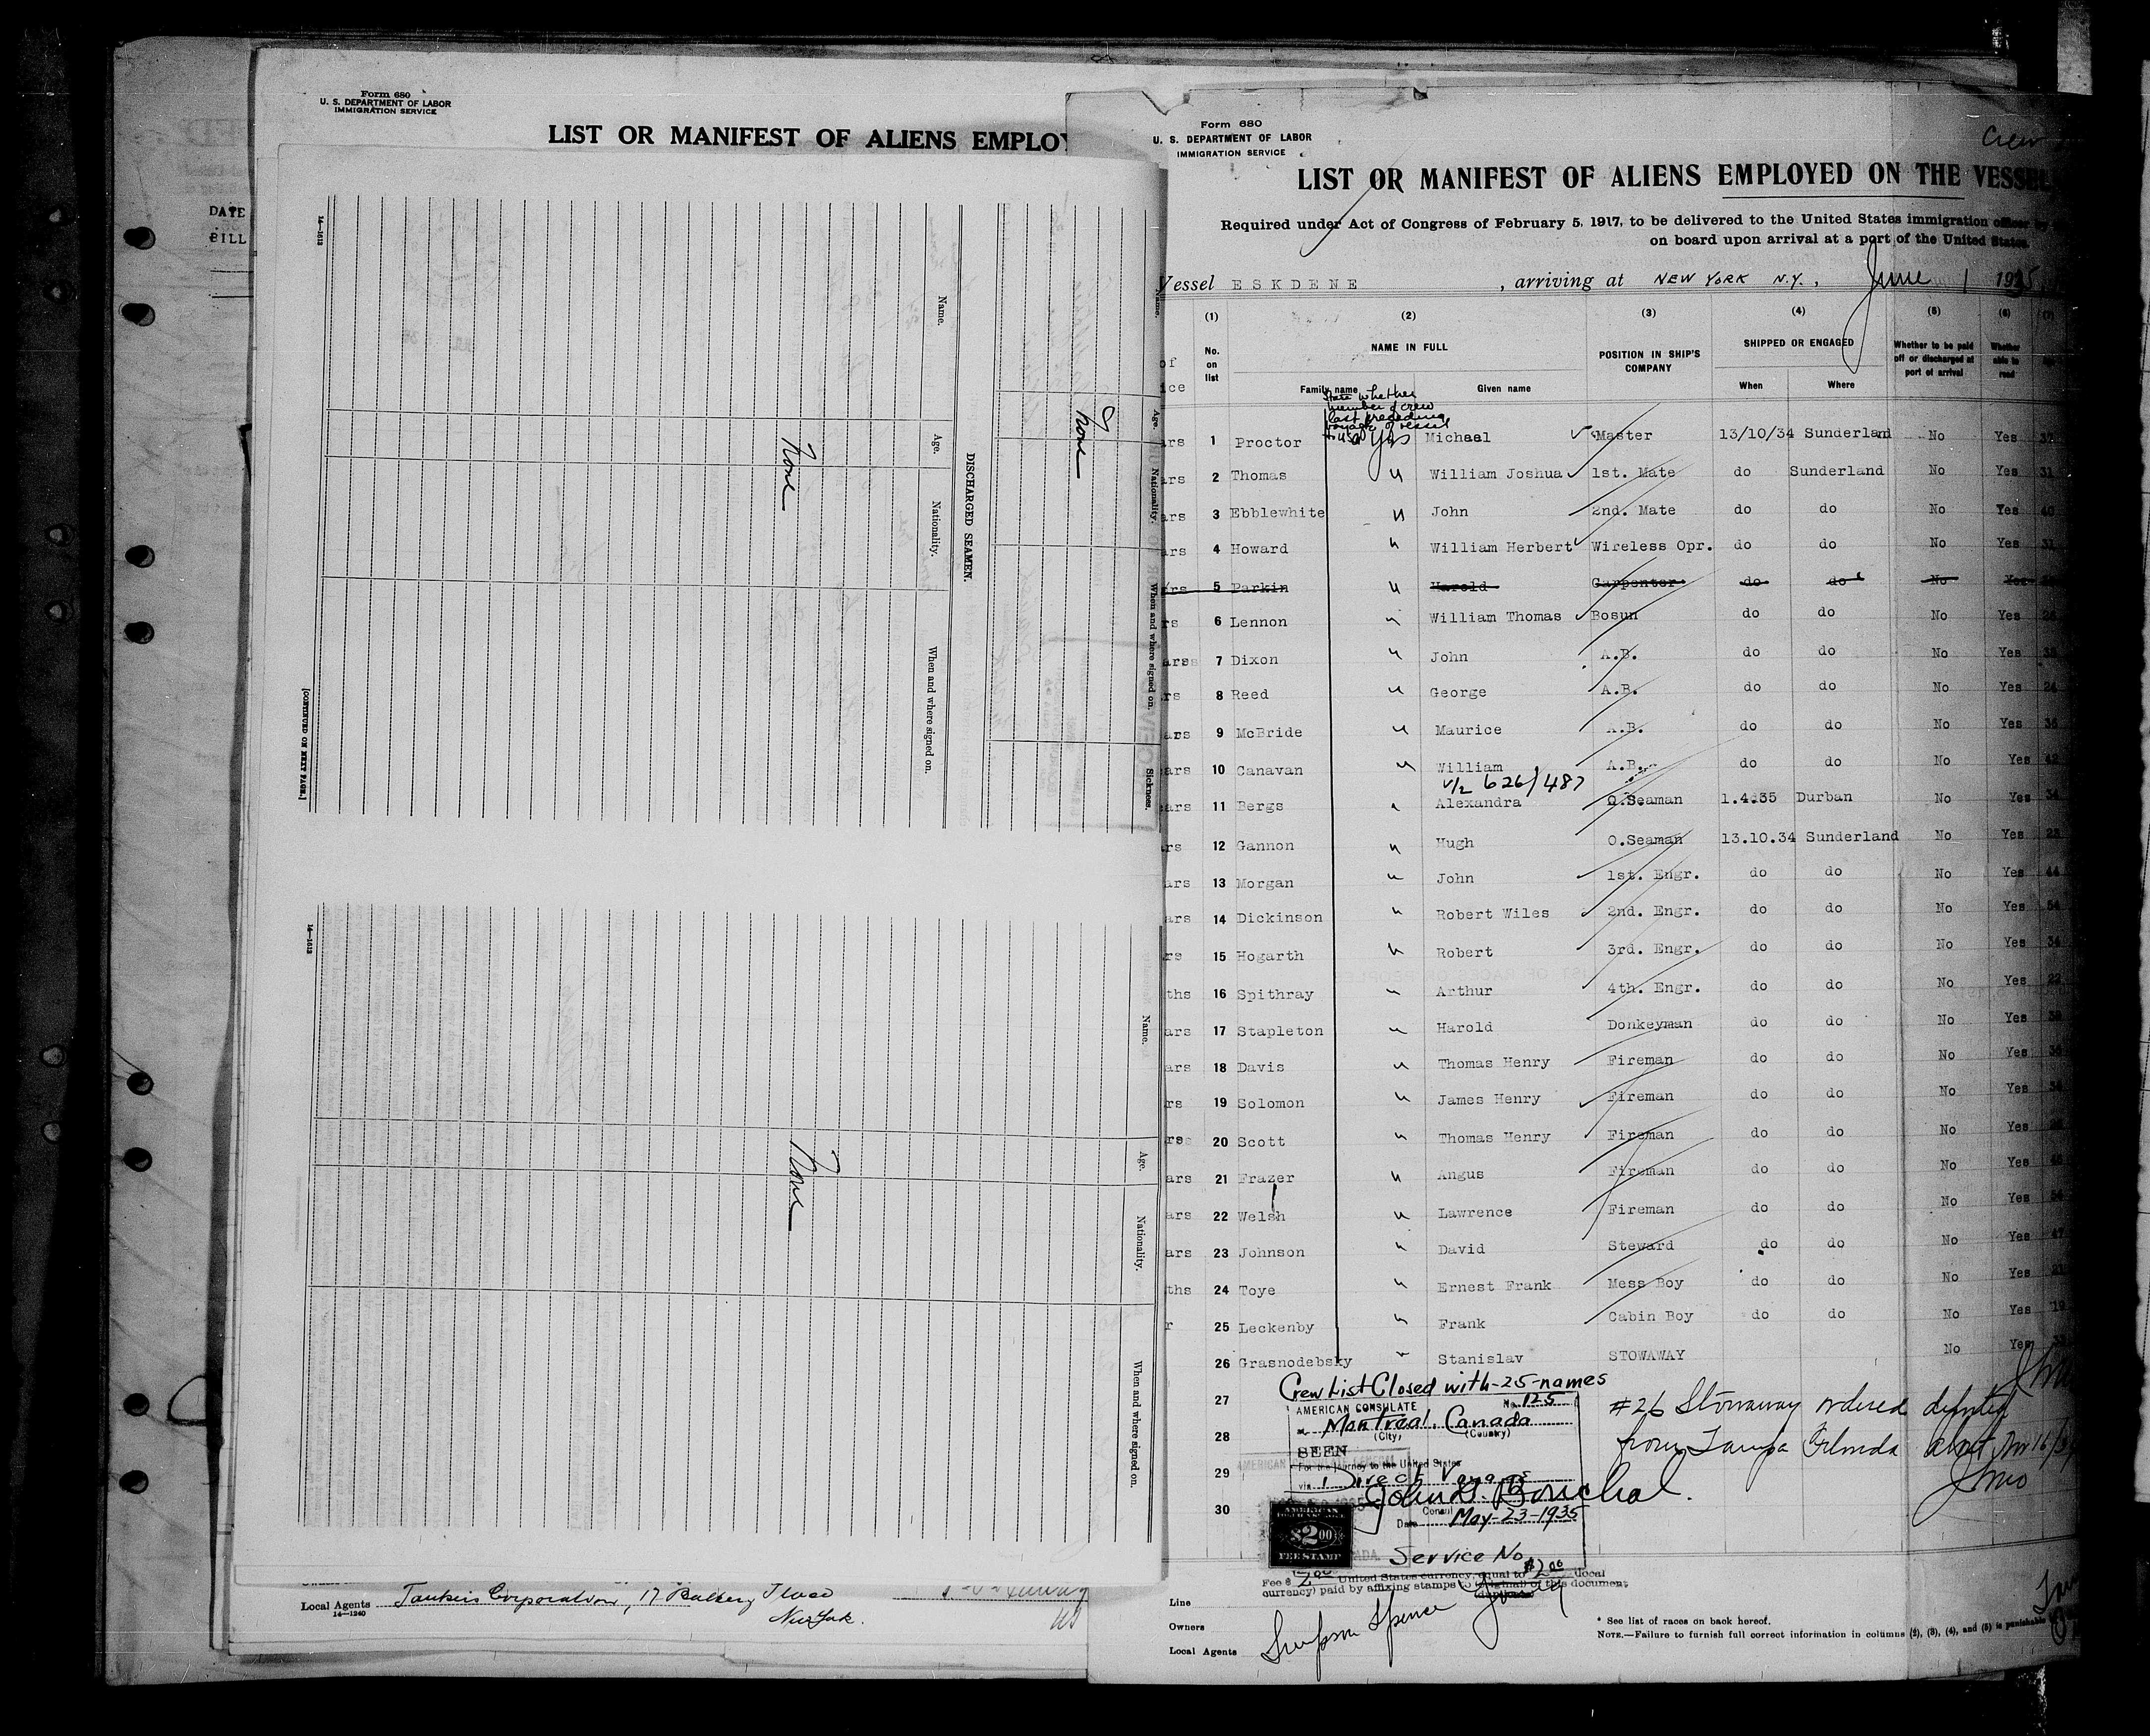 Form 680
U. S. DEPARTMENT OF LABOR
IMMIGRATION SERVICE
LIST OR MANIFEST OF ALIENS EMPLOY
DATE
BILL
14—1613
Name.
Age.
Nationality.
When and where signed on.
None
DISCHARGED SEAMEN.
[CONTINUED ON NEXT PAGE.]
Name.
Age.
Nationality.
When and where signed on.
Sickness.
None
14—1613
Name.
Age.
Nationality.
When and where signed on.
None
Local Agents Tankers Corporation, 17 Battery Place
14—1240
New York.
Form 680
U. S. DEPARTMENT OF LABOR
IMMIGRATION SERVICE
Crew
LIST OR MANIFEST OF ALIENS EMPLOYED ON THE VESSEL
Required under Act of Congress of February 5, 1917, to be delivered to the United States immigration officer by
on board upon arrival at a port of the United States
Vessel ESKDENE, arriving at NEW YORK N.Y., June 1 1935
(1) (2) (3) (4) (5) (6) (7)
No. on list NAME IN FULL POSITION IN SHIP'S COMPANY SHIPPED OR ENGAGED Whether to be paid off or discharged at port of arrival Whether able to read
Family name Given name When Where
State whether
member of crew
last preceding
voyage of vessel
to U.S.
ars 1 Proctor Yes Michael Master 13/10/34 Sunderland No Yes 32
ars 2 Thomas " William Joshua 1st. Mate do Sunderland No Yes 31
ars 3 Ebblewhite " John 2nd. Mate do do No Yes 40
ars 4 Howard " William Herbert Wireless Opr. do do No Yes 31
ars 5 Parkin " Harold Carpenter do do No Yes
rs 6 Lennon " William Thomas Bosun do do No Yes 26
ars 7 Dixon " John A.B. do do No Yes 38
rs 8 Reed " George A.B. do do No Yes 24
ars 9 McBride " Maurice A.B. do do No Yes 36
ars 10 Canavan " William A.B. do do No Yes 42
626/487
ars 11 Bergs " Alexandra O.Seaman 1.4.35 Durban No Yes 34
rs 12 Gannon " Hugh O.Seaman 13.10.34 Sunderland No Yes 23
ars 13 Morgan " John 1st. Engr. do do No Yes 44
ars 14 Dickinson " Robert Wiles 2nd. Engr. do do No Yes 54
rs 15 Hogarth " Robert 3rd. Engr. do do No Yes 34
ths 16 Spithray " Arthur 4th. Engr. do do No Yes 22
ars 17 Stapleton " Harold Donkeyman do do No Yes 39
ars 18 Davis " Thomas Henry Fireman do do No Yes 36
rs 19 Solomon " James Henry Fireman do do No Yes 34
rs 20 Scott " Thomas Henry Fireman do do No Yes
ars 21 Frazer " Angus Fireman do do No Yes
ars 22 Welsh " Lawrence Fireman do do No Yes
ars 23 Johnson " David Steward do do No Yes 47
ths 24 Toye " Ernest Frank Mess Boy do do No Yes 21
r 25 Leckenby " Frank Cabin Boy do do No Yes 19
26 Grasnodebsky " Stanislav STOWAWAY No Yes
Crew List Closed with-25-names
27
AMERICAN CONSULATE No. 125
Montreal, Canada
(City) (Country)
28
SEEN
For the journey to the United States
29
via Direct Voyage
John G. Bouchal.
30
Consul
Date May-23-1935
#26 Stowaway ordered deported
from Tampa Florida about Nov 16/34
AMERICAN
$2.00
FEE STAMP
Service No.
Fee $ 2.00 United States currency, equal to $2.00 (local
currency) paid by affixing stamps to original of this document
(duplicate)
Line
Owners
Local Agents Simpson Spence & Young
* See list of races on back hereof.
NOTE.—Failure to furnish full correct information in columns (2), (3), (4), and (5) is punishable